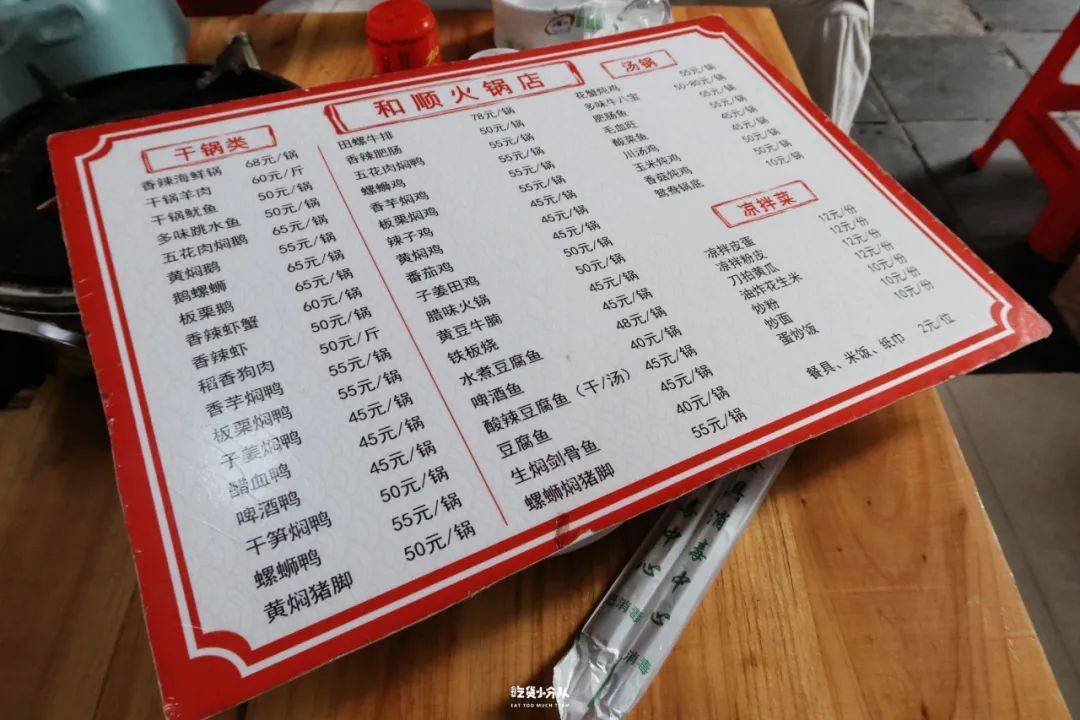 和顺火锅店
干锅类
香辣海鲜锅 68元/锅
干锅羊肉 60元/斤
干锅鱿鱼 50元/锅
多味跳水鱼 50元/锅
五花肉焖鹅 65元/锅
黄焖鹅 55元/锅
鹅螺蛳 65元/锅
板栗鹅 65元/锅
香辣虾蟹 60元/锅
香辣虾 50元/锅
稻香狗肉 50元/斤
香芋焖鸭 55元/锅
板栗焖鸭 55元/锅
子姜焖鸭 45元/锅
醋血鸭 45元/锅
啤酒鸭 45元/锅
干笋焖鸭 50元/锅
螺蛳鸭 55元/锅
黄焖猪脚 50元/锅
田螺牛排 78元/锅
香辣肥肠 50元/锅
五花肉焖鸭 55元/锅
螺蛳鸡 55元/锅
香芋焖鸡 55元/锅
板栗焖鸡 55元/锅
辣子鸡 45元/锅
黄焖鸡 45元/锅
番茄鸡 45元/锅
子姜田鸡 50元/锅
腊味火锅 50元/锅
黄豆牛腩 45元/锅
铁板烧 45元/锅
水煮豆腐鱼 48元/锅
啤酒鱼 40元/锅
酸辣豆腐鱼（干/汤） 45元/锅
豆腐鱼 45元/锅
生焖剑骨鱼 40元/锅
螺蛳焖猪脚 55元/锅
汤锅
花蟹炖鸡 55元/锅
多味牛八宝 50-80元/锅
肥肠鱼 55元/锅
毛血旺 55元/锅
酸菜鱼 45元/锅
川汤鸡 45元/锅
玉米炖鸡 50元/锅
香菇炖鸡 50元/锅
鸳鸯锅底 10元/锅
凉拌菜
凉拌皮蛋 12元/份
凉拌粉皮 12元/份
刀拍黄瓜 12元/份
油炸花生米 12元/份
炒粉 10元/份
炒面 10元/份
蛋炒饭 10元/份
餐具、米饭、纸巾 2元/位
消毒中心
吃货小分队
EAT TOO MUCH TEAM